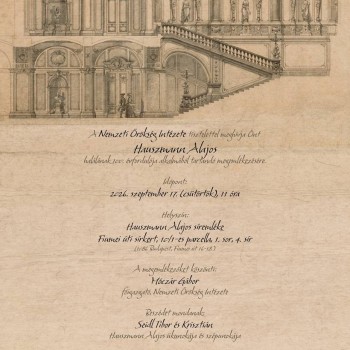 A Nemzeti Örökség Intézete tisztelettel meghívja Önt
Hauszmann Alajos
halálának 100. évfordulója alkalmából tartandó megemlékezésére.
Időpont:
2026. szeptember 17. (csütörtök), 11 óra
Helyszín:
Hauszmann Alajos síremléke
Fiumei úti sírkert, 10/1-es parcella, 1. sor, 4. sír
(1086 Budapest, Fiumei út 16-18.)
A megemlékezőket köszönti:
Móczár Gábor
főigazgató, Nemzeti Örökség Intézete
Beszédet mondanak:
Seidl Tibor és Krisztián
Hauszmann Alajos ükunokája és szépunokája